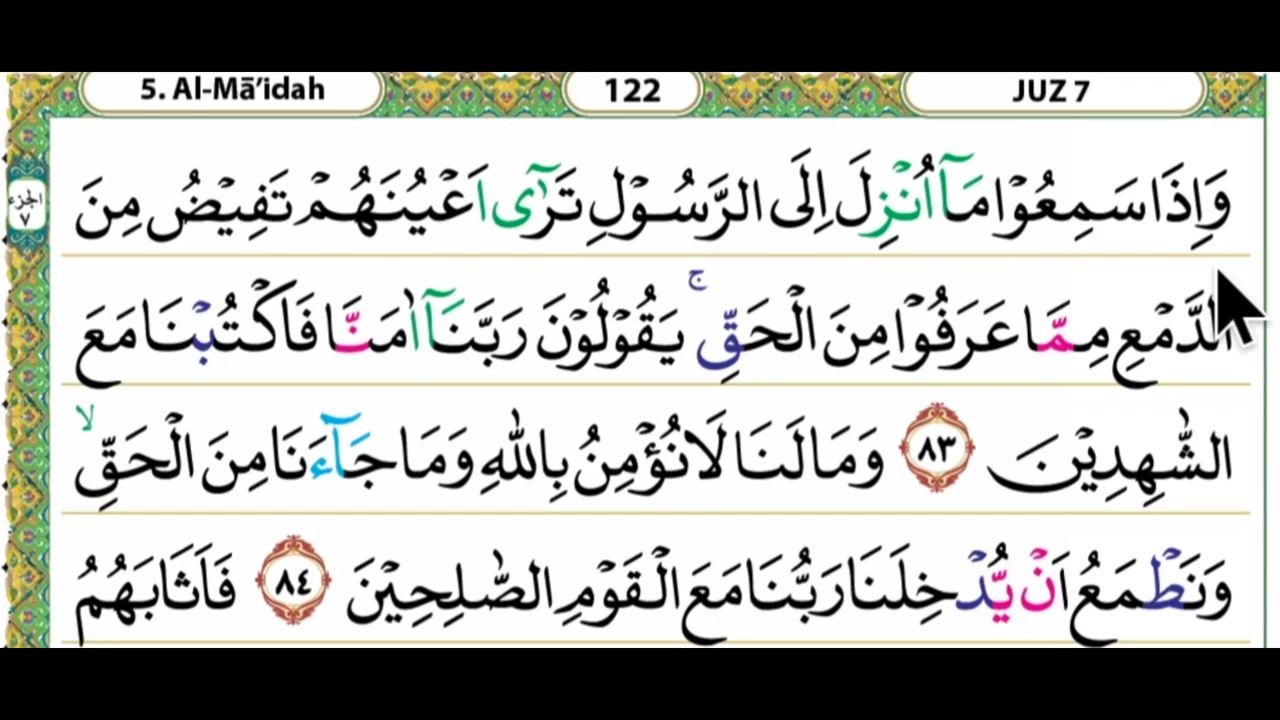 5. Al-Mā’idah 122 JUZ 7
الجزء ٧
وَاِذَا سَمِعُوْا مَآ اُنْزِلَ اِلَى الرَّسُوْلِ تَرٰٓى اَعْيُنَهُمْ تَفِيْضُ مِنَ
الدَّمْعِ مِمَّا عَرَفُوْا مِنَ الْحَقِّۚ يَقُوْلُوْنَ رَبَّنَآ اٰمَنَّا فَاكْتُبْنَا مَعَ
الشّٰهِدِيْنَ ٨٣ وَمَا لَنَا لَا نُؤْمِنُ بِاللّٰهِ وَمَا جَآءَنَا مِنَ الْحَقِّۙ
وَنَطْمَعُ اَنْ يُّدْخِلَنَا رَبُّنَا مَعَ الْقَوْمِ الصّٰلِحِيْنَ ٨٤ فَاَثَابَهُمُ